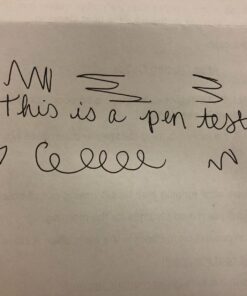 This is a pen test